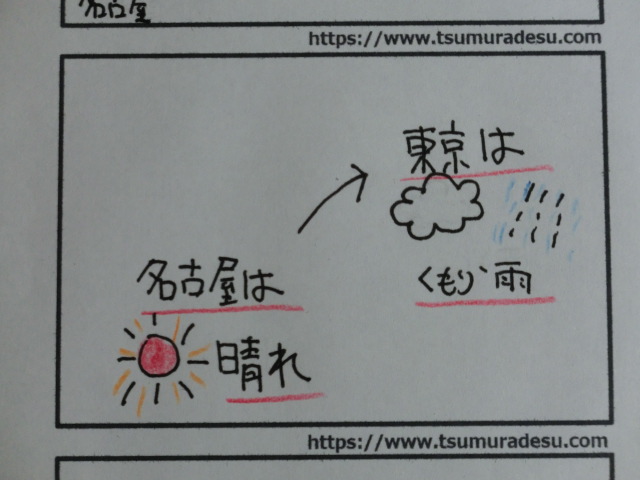 名古屋
https://www.tsumuradesu.com
東京は
くもり、雨
名古屋は
晴れ
https://www.tsumuradesu.com